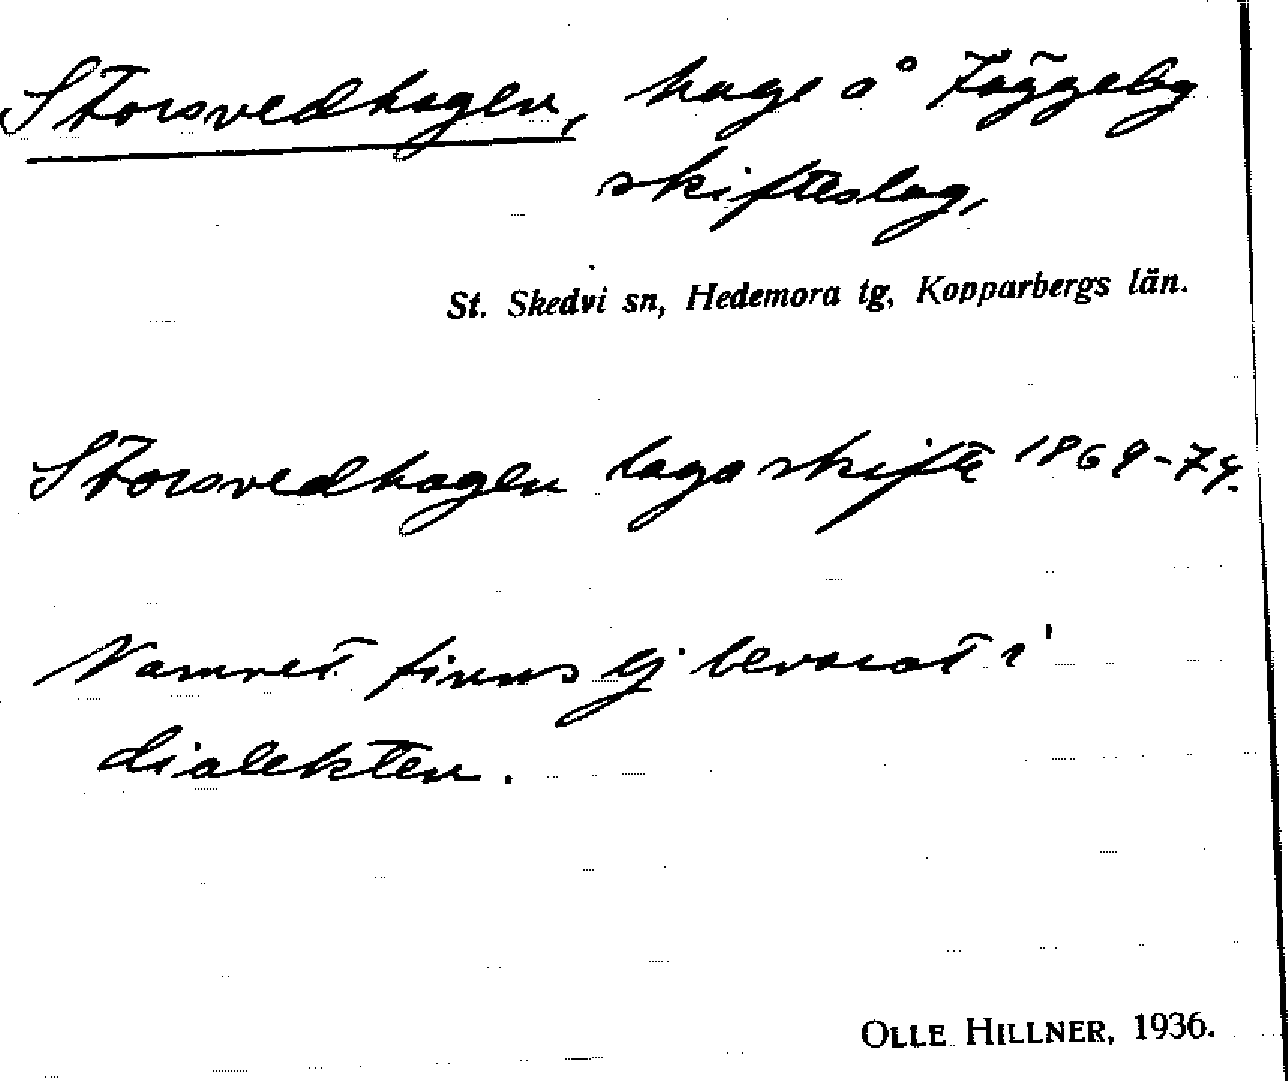 Storsvedhagen, hage å Täggeby
skifteslag,
St. Skedvi sn, Hedemora tg, Kopparbergs län.
Storsvedhagen laga skifte 1869-74.
Namnet finns ej bevarat i
dialekten.
OLLE HILLNER, 1936.